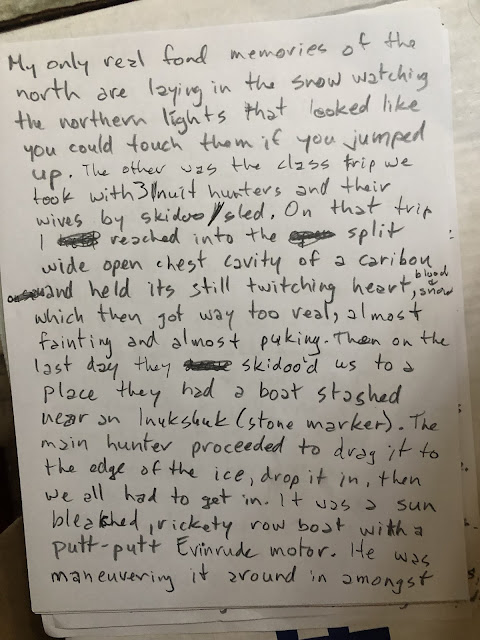 My only real fond memories of the
north are laying in the snow watching
the northern lights that looked like
you could touch them if you jumped
up. The other was the class trip we
took with 3 Inuit hunters and their
wives by skidoo/sled. On that trip
I reached into the split
wide open chest cavity of a caribou
and held its still twitching heart, blood & snow
which then got way too real, almost
fainting and almost puking. Then on the
last day they skidoo'd us to a
place they had a boat stashed
near an Inukshuk (stone marker). The
main hunter proceeded to drag it to
the edge of the ice, drop it in, then
we all had to get in. It was a sun
bleached, rickety row boat with a
putt-putt Evinrude motor. He was
maneuvering it around in amongst